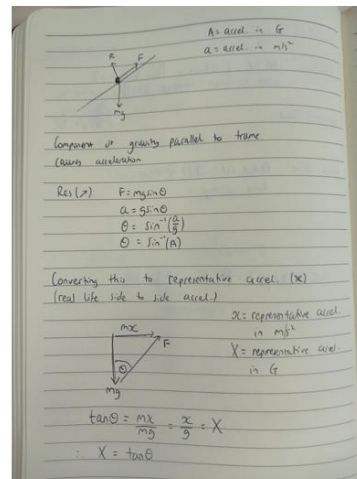 A = accel. in G
a = accel. in m/s²
R
F
mg
Component of gravity parallel to frame
causes acceleration
Res(↗) F = mg sinθ
a = g sinθ
θ = sin⁻¹(a/g)
θ = sin⁻¹(A)
Converting this to representative accel. (x)
(real life side to side accel.)
x = representative accel.
in m/s²
X = representative accel.
in G
mx
F
θ
mg
tanθ = mx/mg = x/g = X
∴ X = tanθ